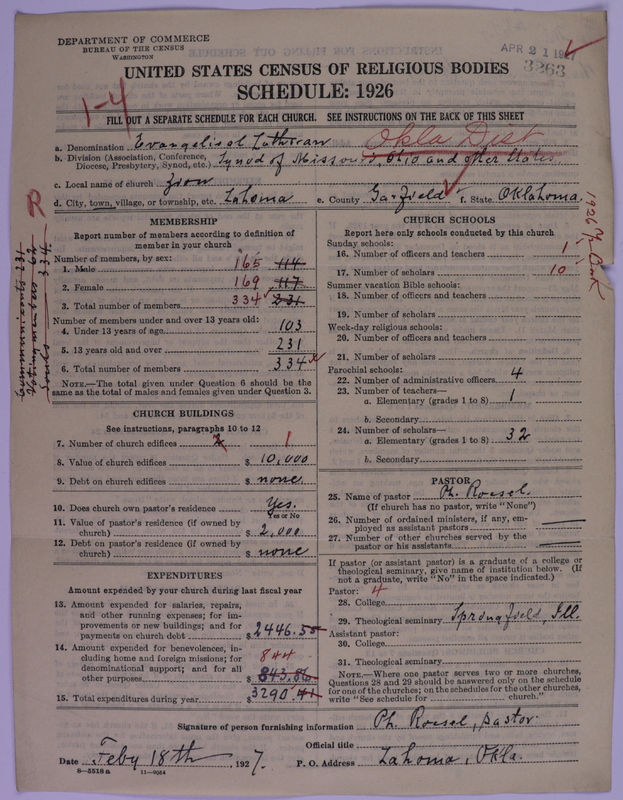 DEPARTMENT OF COMMERCE
BUREAU OF THE CENSUS
WASHINGTON
APR 21 1927
3263
UNITED STATES CENSUS OF RELIGIOUS BODIES
SCHEDULE: 1926
1-4
FILL OUT A SEPARATE SCHEDULE FOR EACH CHURCH. SEE INSTRUCTIONS ON THE BACK OF THIS SHEET
a. Denomination Evangelical Lutheran Okla Dist
b. Division (Association, Conference, Diocese, Presbytery, Synod, etc.) Synod of Missouri Ohio and other States
c. Local name of church Zion
d. City, town, village, or township, etc. Lahoma e. County Garfield f. State Oklahoma.
R
Communicants 231
Voting members 62
Souls 334
1926 Yr Book
MEMBERSHIP
Report number of members according to definition of member in your church
Number of members, by sex:
1. Male 165 114
2. Female 169 117
3. Total number of members 334 231
Number of members under and over 13 years old:
4. Under 13 years of age 103
5. 13 years old and over 231
6. Total number of members 334
NOTE.—The total given under Question 6 should be the same as the total of males and females given under Question 3.
CHURCH BUILDINGS
See instructions, paragraphs 10 to 12
7. Number of church edifices 1
8. Value of church edifices $ 10,000
9. Debt on church edifices $ none
10. Does church own pastor's residence Yes.
Yes or No
11. Value of pastor's residence (if owned by church) $ 2,000
12. Debt on pastor's residence (if owned by church) $ none
EXPENDITURES
Amount expended by your church during last fiscal year
13. Amount expended for salaries, repairs, and other running expenses; for improvements or new buildings; and for payments on church debt $ 2446.55
14. Amount expended for benevolences, including home and foreign missions; for denominational support; and for all other purposes 844 $ 843.86
15. Total expenditures during year $ 3290.41
CHURCH SCHOOLS
Report here only schools conducted by this church
Sunday schools:
16. Number of officers and teachers 1
17. Number of scholars 10
Summer vacation Bible schools:
18. Number of officers and teachers
19. Number of scholars
Week-day religious schools:
20. Number of officers and teachers
21. Number of scholars
Parochial schools:
22. Number of administrative officers 4
23. Number of teachers—
a. Elementary (grades 1 to 8) 1
b. Secondary
24. Number of scholars—
a. Elementary (grades 1 to 8) 32
b. Secondary
PASTOR
25. Name of pastor Ph. Roesel.
(If church has no pastor, write "None")
26. Number of ordained ministers, if any, employed as assistant pastors
27. Number of other churches served by the pastor or his assistants
If pastor (or assistant pastor) is a graduate of a college or theological seminary, give name of institution below. (If not a graduate, write "No" in the space indicated.)
Pastor: 4
28. College
29. Theological seminary Springfield, Ill.
Assistant pastor:
30. College
31. Theological seminary
NOTE.—Where one pastor serves two or more churches, Questions 28 and 29 should be answered only on the schedule for one of the churches; on the schedules for the other churches, write "See schedule for church."
Signature of person furnishing information Ph. Roesel, pastor.
Official title
Date Feby 18th, 1927. P. O. Address Lahoma, Okla.
8-5518a 11-9054